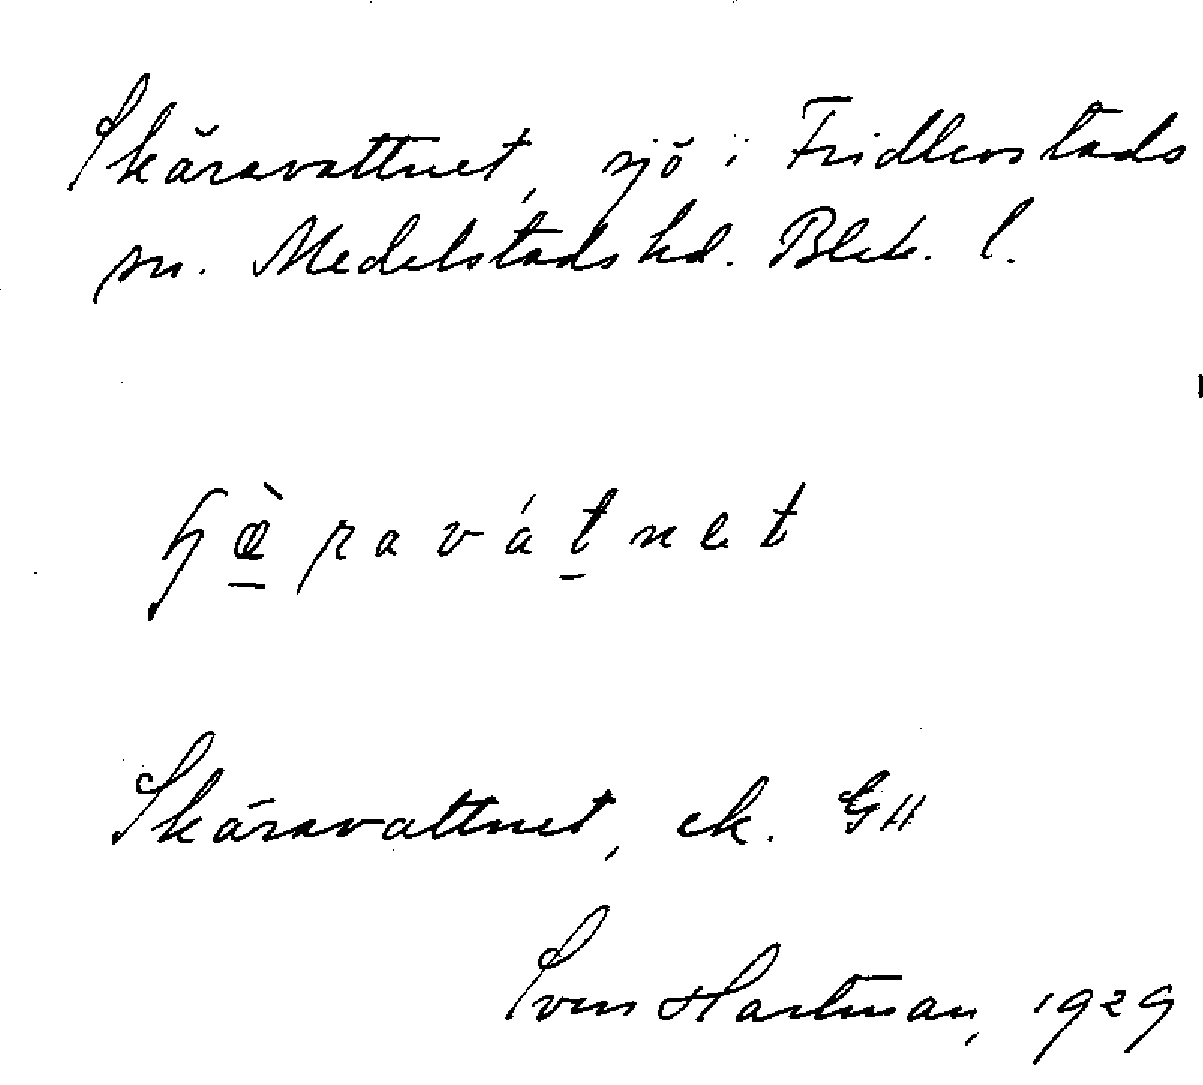 Skäravattnet, sjö i Fridlevstads
sn. Medelstads hd. Blek. l.
ɧæ̠̀ravát̠net
Skäravattnet, ek. GH
Sven Hartman, 1929